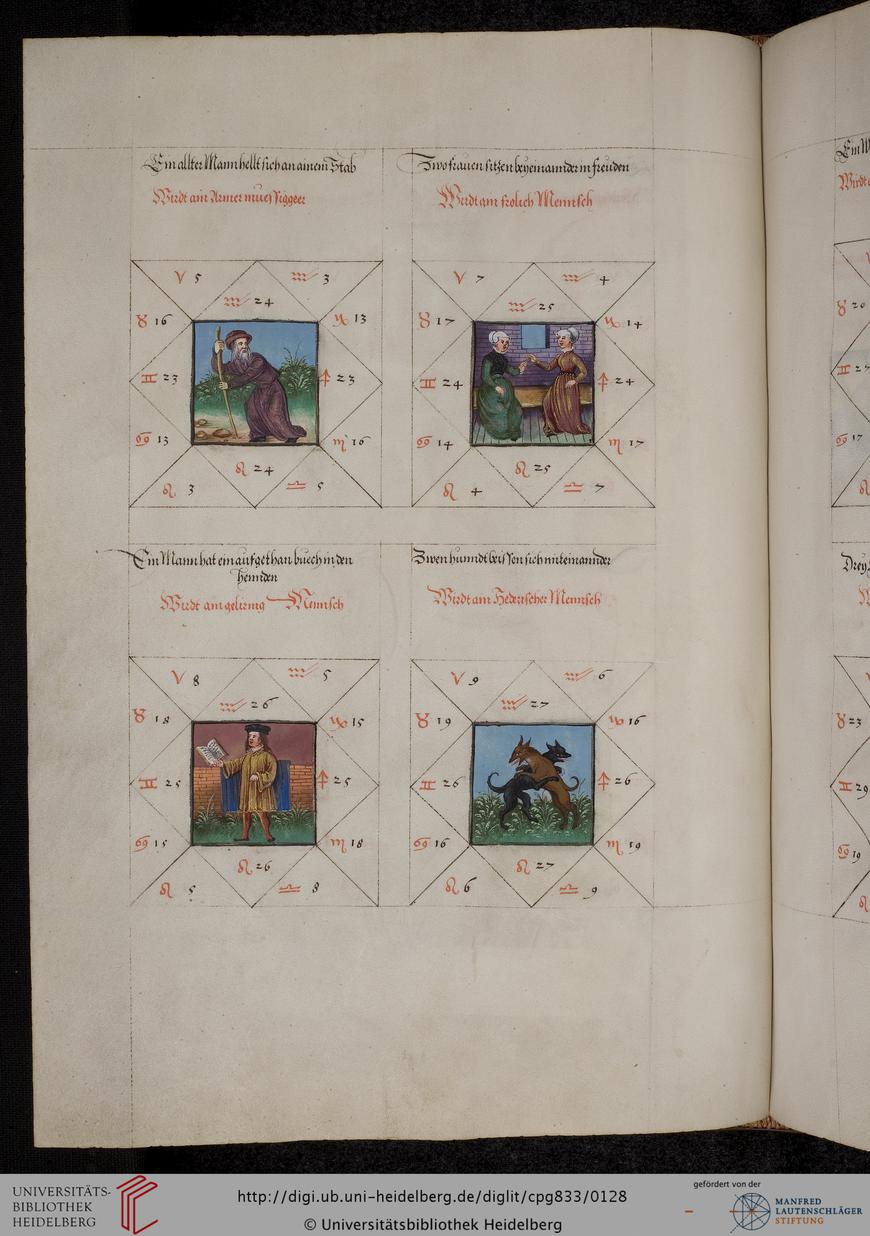 Ein allter Mann hellt sich an ainem Stab
Wirdt ain Armer muessiggeer
♈ 5
♓ 3
♒ 24
♉ 16
♑ 13
♊ 23
♐ 23
♋ 13
♏ 16
♌ 24
♌ 3
♎ 5
Zwo frauen sitzen bey einannder in freuden
Wirdt ain frolich Mennsch
♈ 7
♒ 4
♒ 25
♉ 17
♑ 14
♊ 24
♐ 24
♋ 14
♏ 17
♌ 25
♌ 4
♎ 7
Ein Mann hat ein aufgethan buech in den
hennden
Wirdt ain gelirnig Mennsch
♈ 8
♒ 5
♒ 26
♉ 18
♑ 15
♊ 25
♐ 25
♋ 15
♏ 18
♌ 26
♌ 5
♎ 8
Zwen hunndt beissen sich mit einannder
Wirdt ain Hederischer Mennsch
♈ 9
♒ 6
♒ 27
♉ 19
♑ 16
♊ 26
♐ 26
♋ 16
♏ 19
♌ 27
♌ 6
♎ 9
Drey
♉ 23
♊ 29
♋ 19
UNIVERSITÄTS-
BIBLIOTHEK
HEIDELBERG
http://digi.ub.uni-heidelberg.de/diglit/cpg833/0128
© Universitätsbibliothek Heidelberg
gefördert von der
MANFRED
LAUTENSCHLÄGER
STIFTUNG